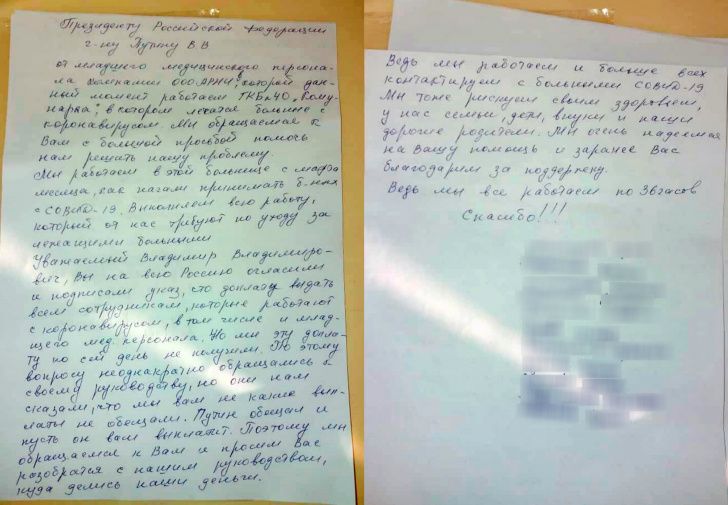 Президенту Российской Федерации
г-ну Путину В.В
от младшего медицинского персона-
ла компании ООО "АРНИ", в которой дан-
ный момент работаем ГКБ№40 "Комму-
нарка", в котором лечатся больные с
коронавирусом. Мы обращаемся к
Вам с большой просьбой помочь
нам решить нашу проблему.
Мы работаем в этой больнице с марта
месяца, как начали принимать б-ных
с COVID-19. Выполняем всю работу,
который от нас требуют по уходу за
лежащими больными
Уважаемый Владимир Владимиро-
вич, Вы на всю Россию огласили
и подписали указ, что доплату выдать
всем сотрудникам, которые работают
с коронавирусом, в том числе и млад-
щего мед. персонала. Но мы эту допла-
ту по сей день не получили. По этому
вопросу неоднакратно обращались к
своему руководству, но они нам
сказали, что мы вам не какие вып-
латы не обещали. Путин обещал и
пусть он вам выплатит. Поэтому мы
обращаемся к Вам и просим Вас
разобратся с нашим руководством,
куда делись наши деньги.
Ведь мы работаем и больше всех
контактируем с больными COVID-19
Мы тоже рискуем своим здоровьем,
у нас семьи, дети, внуки и наши
дорогие родители. Мы очень надеемся
на Вашу помощь и заранее Вас
благодарим за поддержку.
Ведь мы все работаем по 36 часов
Спасибо!!!